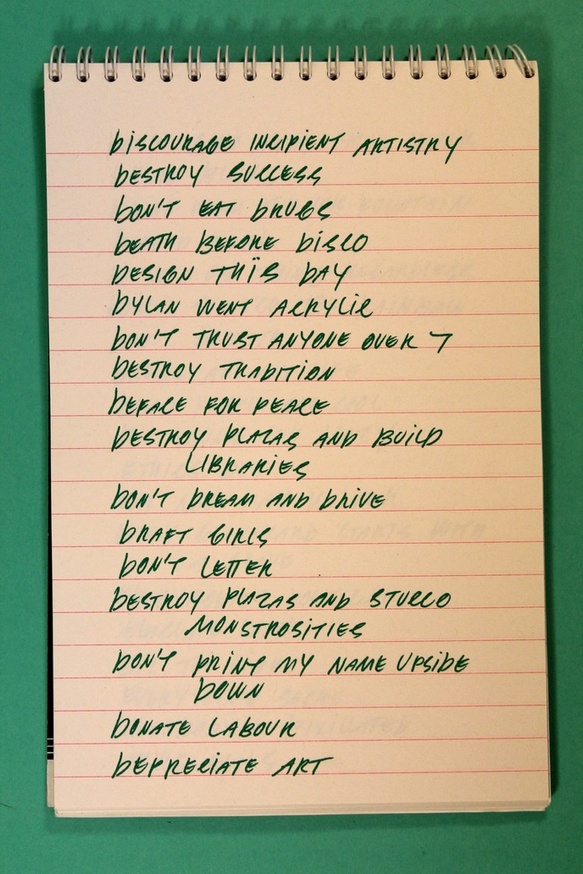 DISCOURAGE INCIPIENT ARTISTRY
DESTROY SUCCESS
DON'T EAT DRUGS
DEATH BEFORE DISCO
DESIGN THÏS DAY
DYLAN WENT ACRYLIC
DON'T TRUST ANYONE OVER 7
DESTROY TRADITION
DEFACE FOR PEACE
DESTROY PLAZAS AND BUILD
LIBRARIES
DON'T DREAM AND DRIVE
DRAFT GIRLS
DON'T LETTER
DESTROY PLAZAS AND STUCCO
MONSTROSITIES
DON'T PRINT MY NAME UPSIDE
DOWN
DONATE LABOUR
DEPRECIATE ART